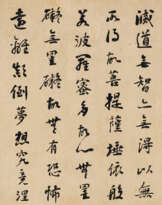 滅道無智亦無得以無
所得故菩提薩埵依般
若波羅蜜多故心無罣
礙無罣礙故無有恐怖
遠離顛倒夢想究竟涅